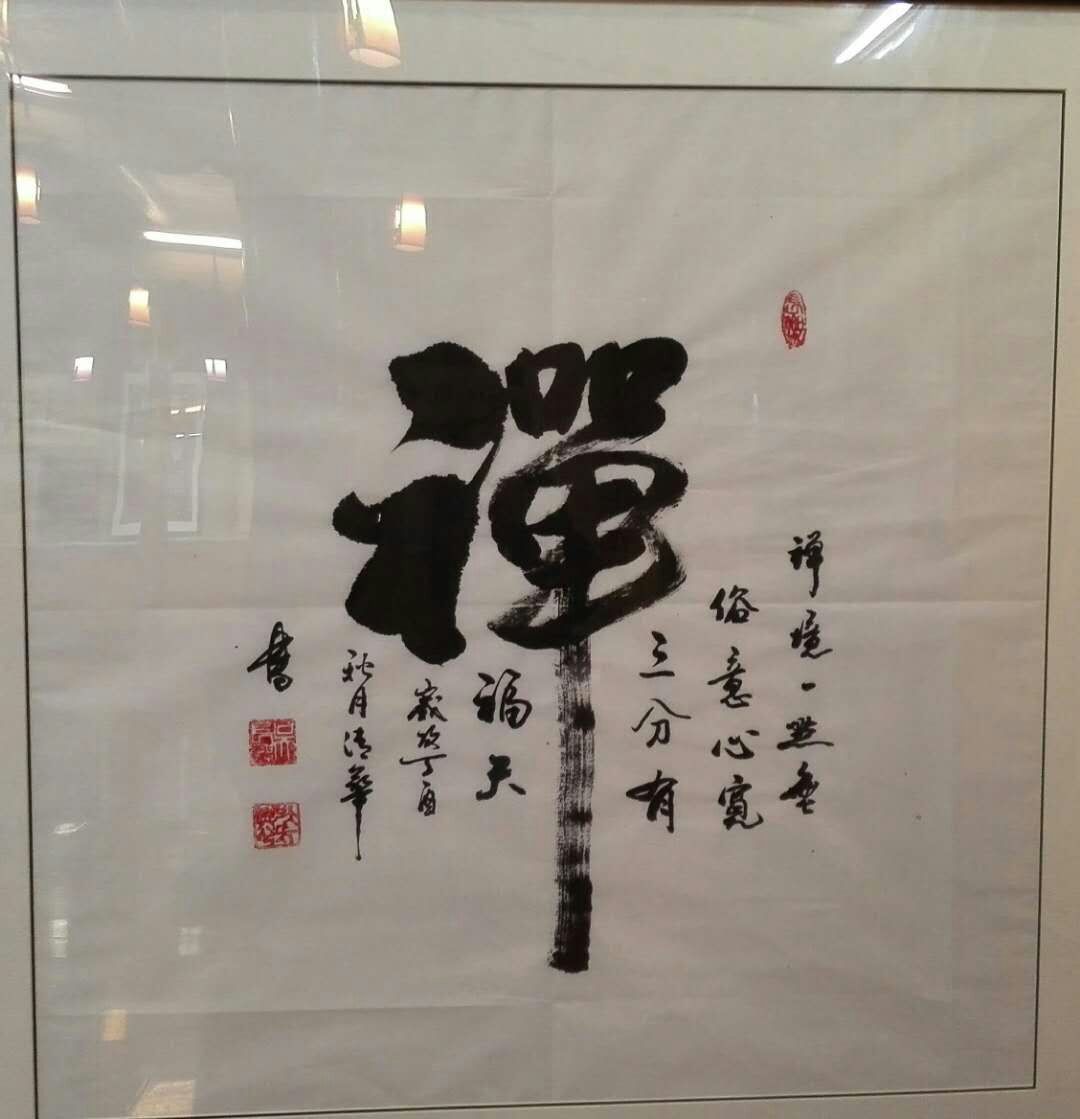 禪
禅境一點无
俗意心寬
三分有
福天
歲次丁酉
秋月清華
書